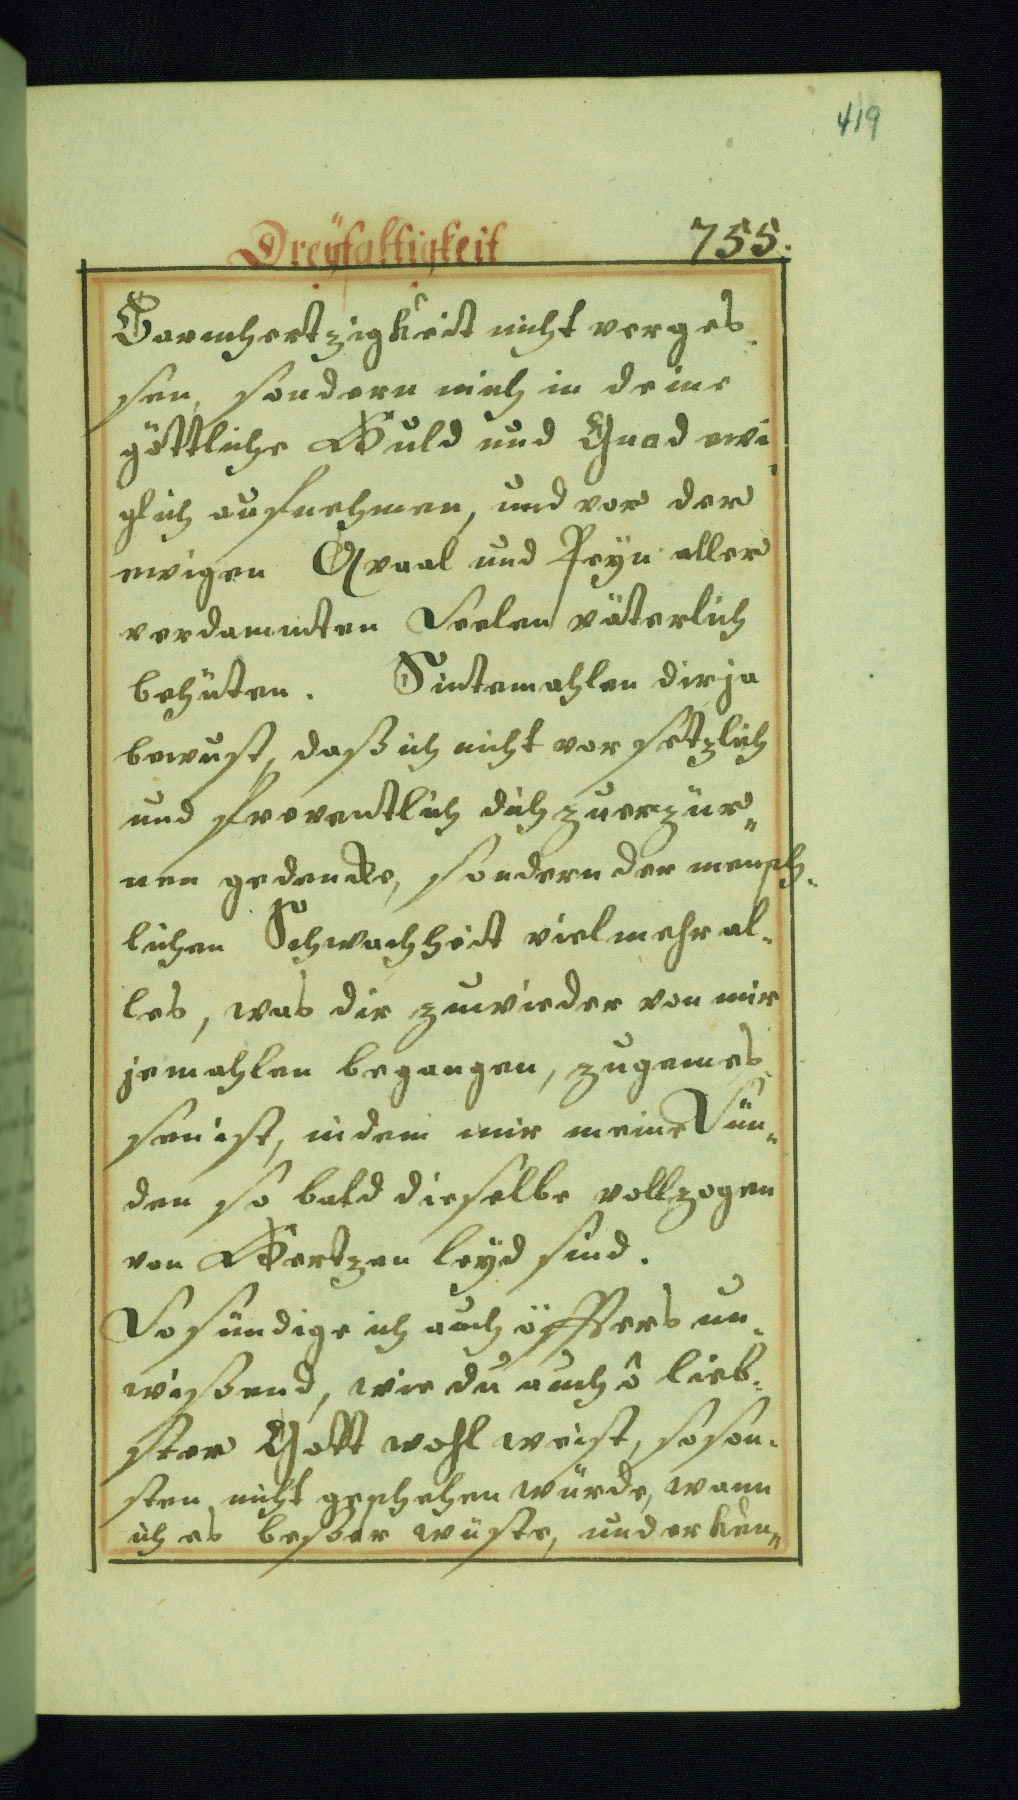 419
Dreÿfaltigkeit 755.
Barmhertzigkeit nicht verges-
sen, sondern mich in deine
göttliche Huld und Gnad ewi-
glich aufnehmen, und vor der
ewigen Qvaal und Peyn aller
verdammten Seelen väterlich
behüten. Sintemahlen dir ja
bewust, daß ich nicht vorsetzlich
und freventlich dich zuerzür-
nen gedencke, sondern der mensch-
lichen Schwachheit vielmehr al-
les, was dir zuwieder von mir
jemahlen begangen, zugemes-
sen ist, indem mir meine Sün-
den so bald dieselbe vollzogen
von Hertzen leyd sind.
So sündige ich auch öffters un-
wißend, wie du auch ô lieb-
ster Gott wohl weist, so son-
sten nicht geschehen würde, wann
ich es beßer wüste, und erken-